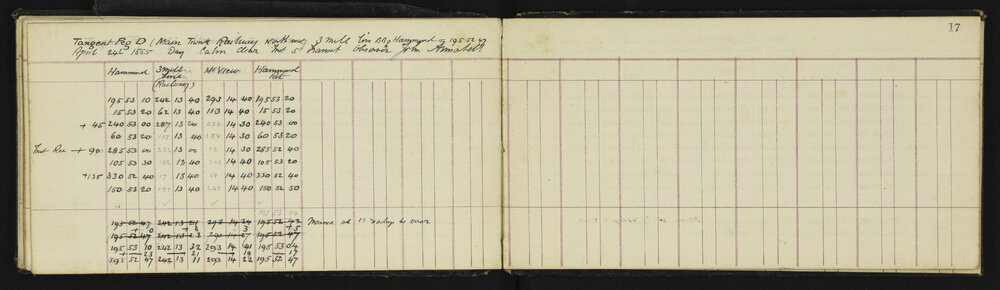 17
Tangent Peg D (Main Trunk Railway North 3 Mile Line BRG Hammond = 195 52 47
April 24th 1885 Day Calm Clear Inst 5" Transit Observer John
Hammond 3 Mile Line (Railway) McVicar Hammond Ret
195 53 10 242 13 40 293 14 40 195 53 20
15 53 20 62 13 40 113 14 40 15 53 20
+ 45 240 53 00 287 13 20 14 30 240 53 00
60 53 20 107 13 40 14 30 60 53 20
Inst Rev + 90 285 53 00 332 13 00 14 30 285 52 40
105 53 30 152 13 40 14 40 105 53 20
+135 330 52 40 17 13 40 14 40 330 52 40
150 53 20 197 13 40 14 40 150 52 50
195 53 04
195 52 47 242 13 21 293 14 24 195 52 42 Mean
+ 0 + 2 3 + 5
195 52 47 242 13 23 293 14 27 195 52 47
195 53 10 242 13 32 293 14 41 195 53 04
23 21 19 17
195 52 47 242 13 11 293 14 22 195 52 47